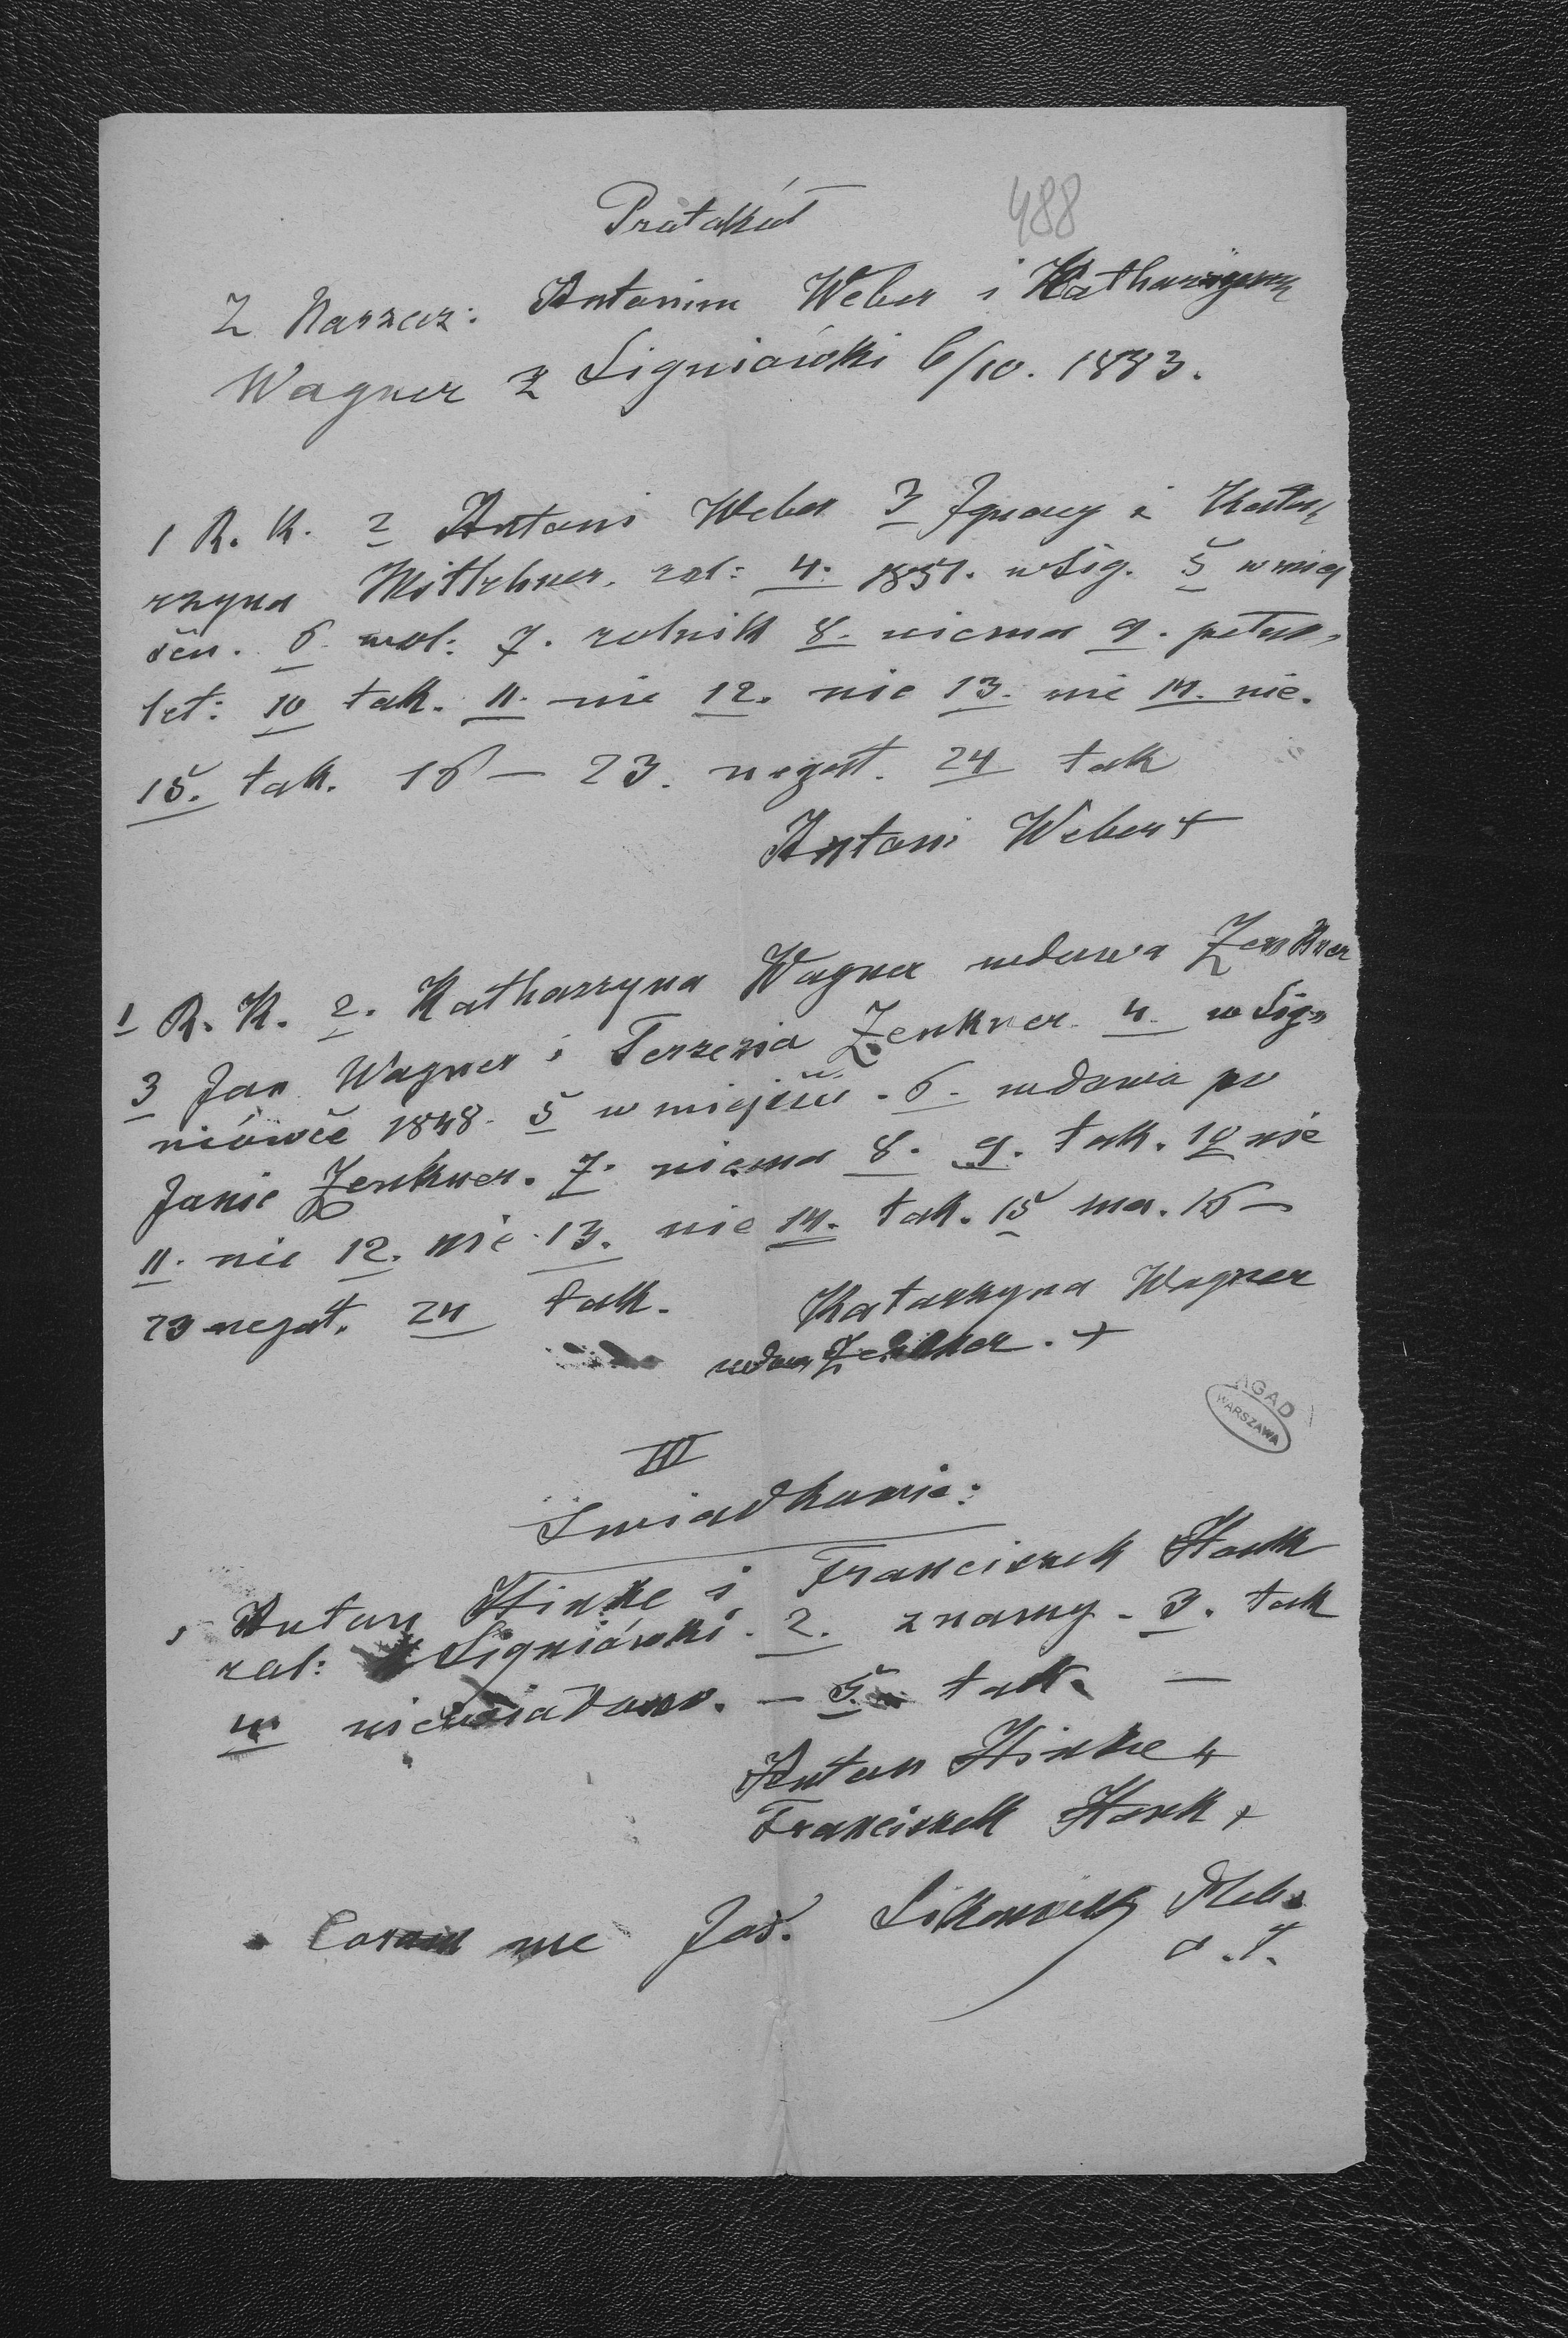 Protokół
488
Z Narzecz: Antonim Weber i Katharzyną
Wagner z Ligniówki 6/10. 1883.
1 R. K. 2 Antoni Weber 3 Ignacy i Kata,
rzyna Mittelner. rol: 4. 1851. w Lig. 5 w miej
scu. 6. wol: 7. rolnik 8. niema 9. pełno,
let: 10 tak. 11. nie 12. nie 13. nie 14. nie.
15. tak. 16 — 23. negat. 24 tak
Antoni Weber +
1 R. K. 2. Katharzyna Wagner wdowa Zenkner
3 Jan Wagner i Terezia Zenkner. 4. w Lig„
niówce 1848. 5 w miejscu. 6. wdowa po
Janie Zenkner. 7. niema 8. 9. tak. 10 nie
11. nie 12. nie 13. nie 14. tak. 15 ma. 16 —
23 negat. 24 tak.
Katarzyna Wagner
wdowa Zenkner. +
III
Swiadkowie:
1 Anton Hinke i Franciszek Hank
rol: z Ligniówki. 2. znamy - 3. tak
4. niewiadomo. — 5. tak. —
Anton Hinke +
Franciszek Hank +
Coram me Jos.
AGAD
WARSZAWA